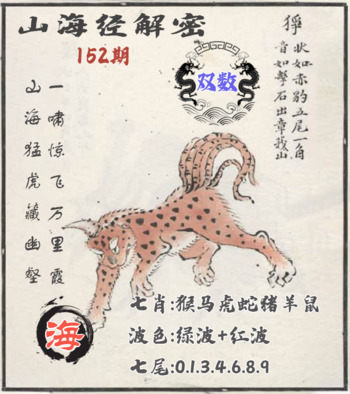 山海经解密
152期
双数
狰 状如赤豹五尾一角
音如擊石出章莪山
一啸惊飞万里霞
山海猛虎藏幽壑
海
七肖:猴马虎蛇猪羊鼠
波色:绿波+红波
七尾:0.1.3.4.6.8.9